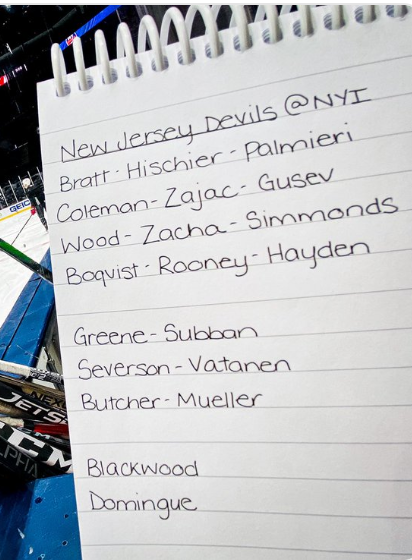 New Jersey Devils @NYI
Bratt - Hischier - Palmieri
Coleman - Zajac - Gusev
Wood - Zacha - Simmonds
Boqvist - Rooney - Hayden
Greene - Subban
Severson - Vatanen
Butcher - Mueller
Blackwood
Domingue
GEICO
JETS
CCM